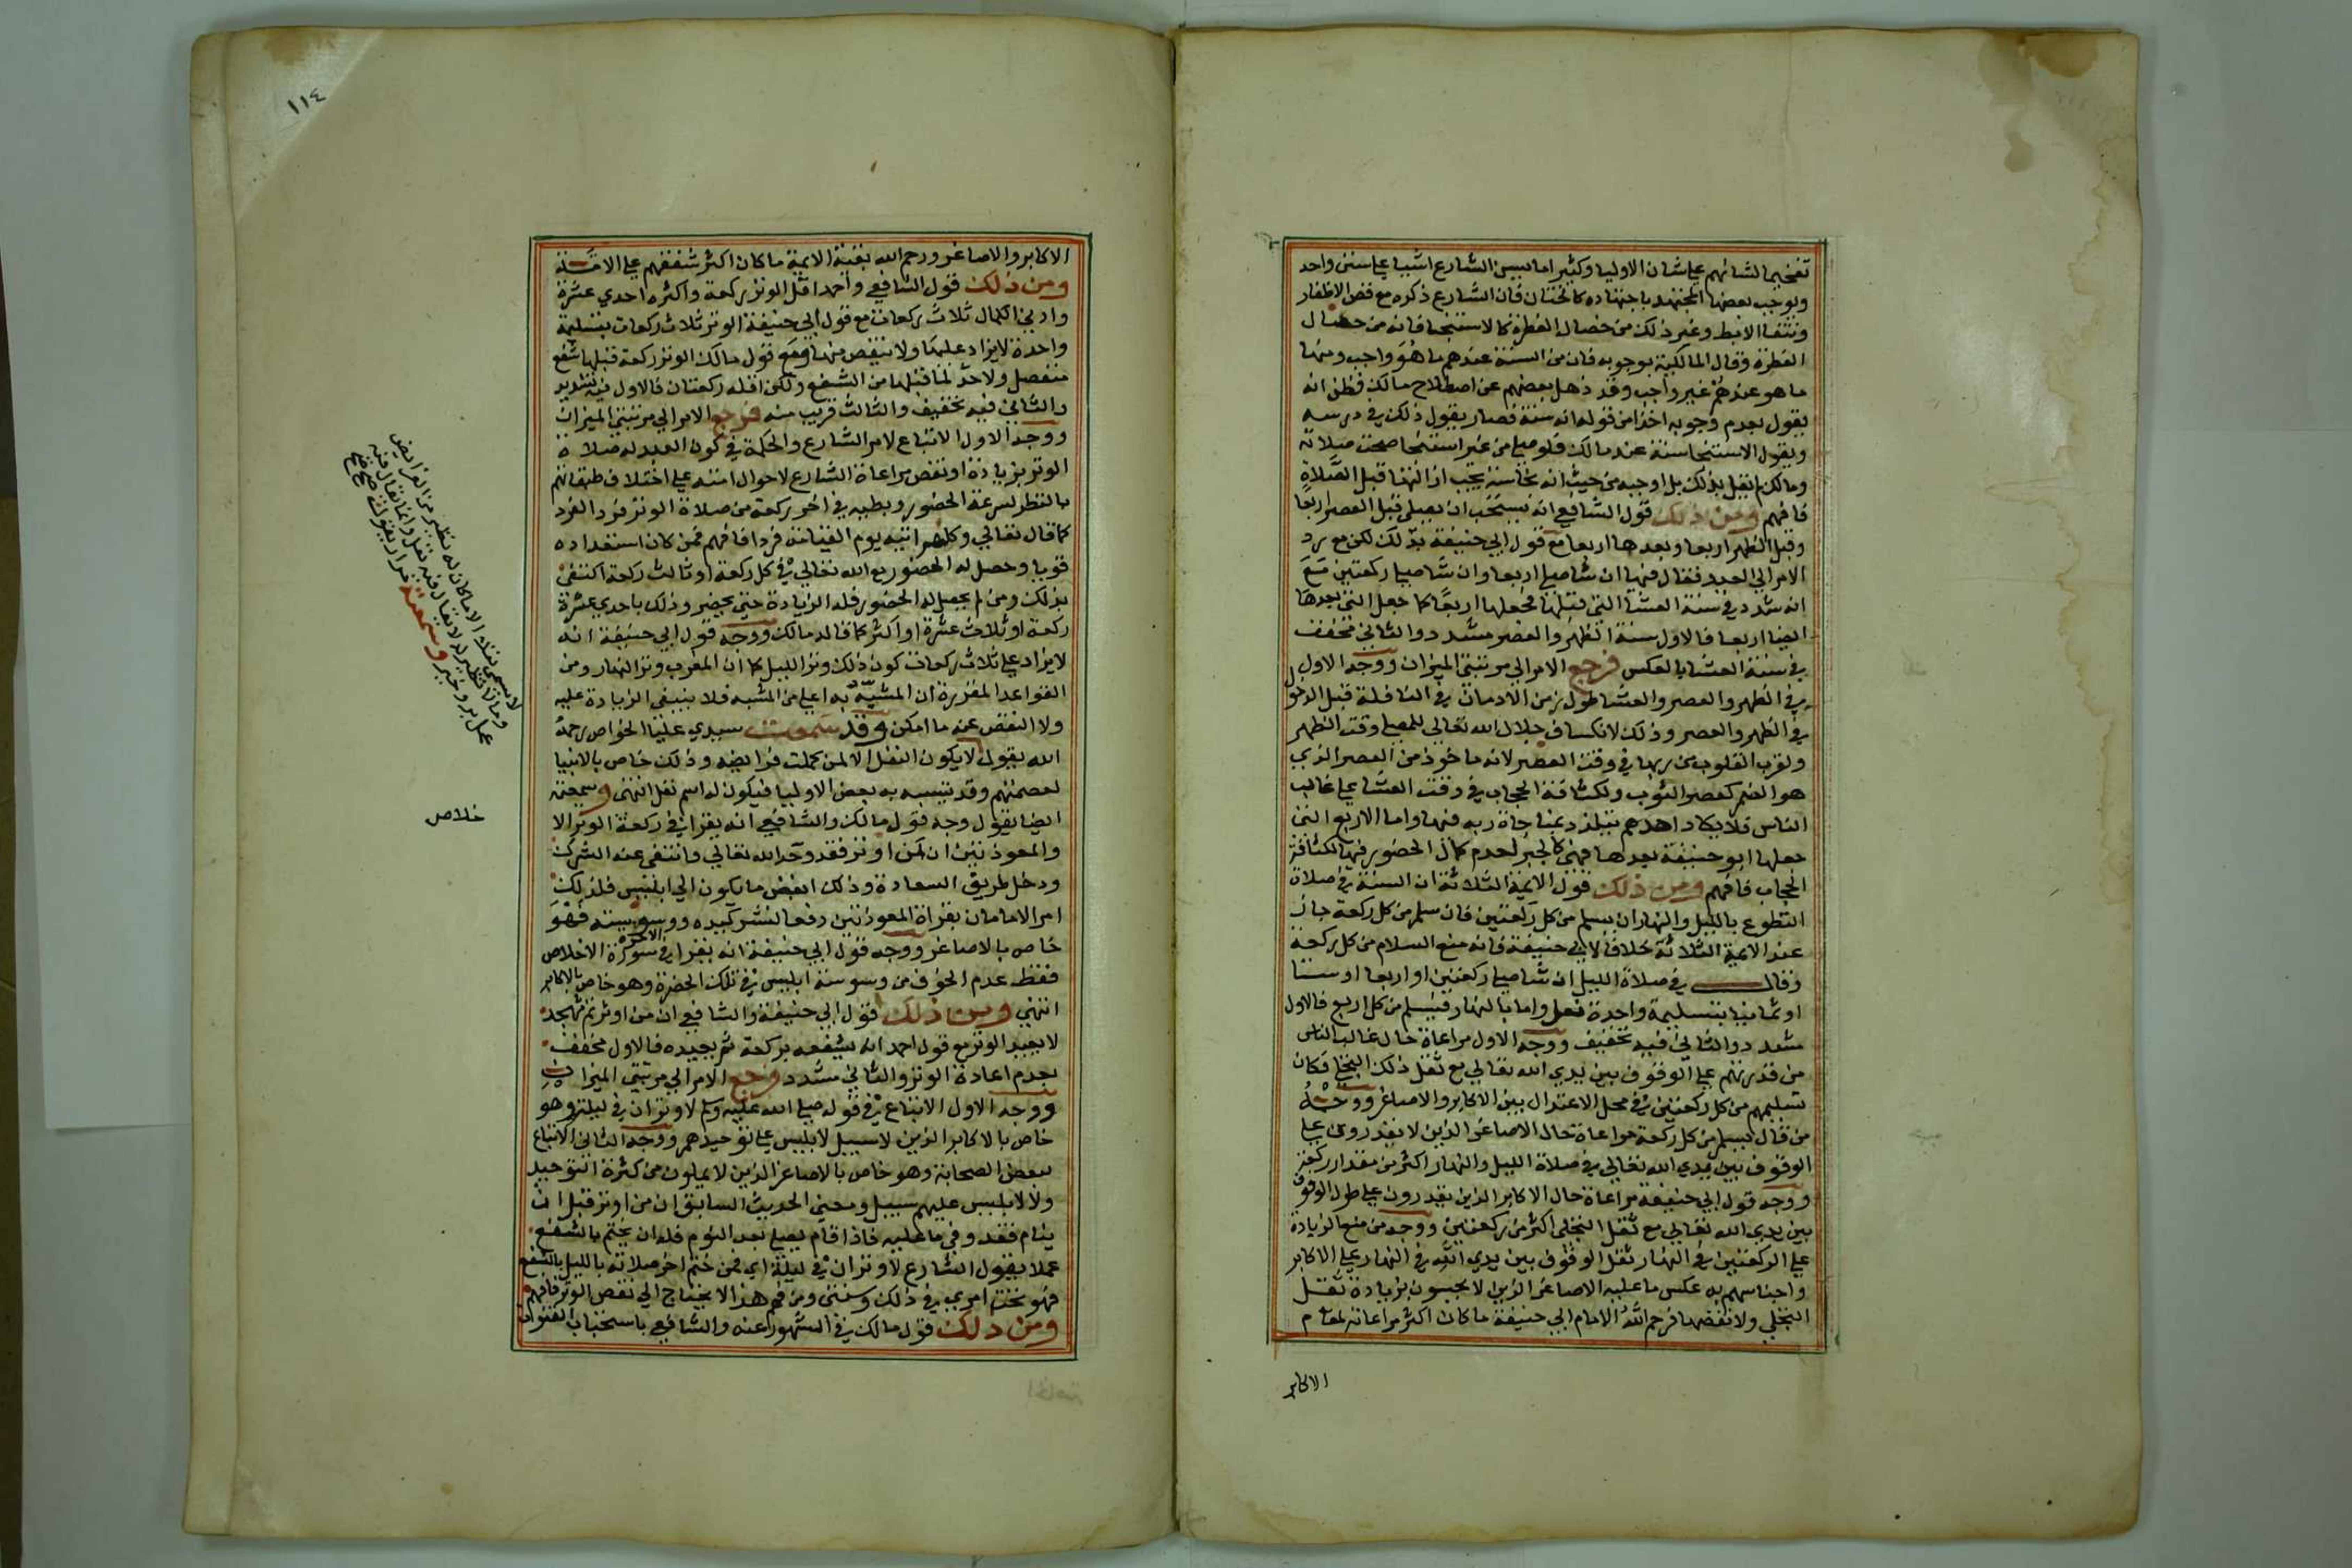 تفخيما لشانهم على شان الاوليا وكثيرا ما يسن الشارع اشيا على سنن واحد
ويوجب بعضها المجتهد باجتهاده كالختان فان الشارع ذكره مع قص الاظفار
ونتف الابط وغير ذلك من خصال الفطرة كالاستنجا فانه من خصال
الفطرة وقال المالكية بوجوبه فان من السنة عندهم ما هو واجب ومنها
ما هو عندهم غير واجب وقد ذهل بعضهم عن اصطلاح مالك فظن انه
يقول بعدم وجوبه اخذا من قوله انه سنة فصار يقول ذلك في درسه
ويقول الاستنجا سنة عند مالك فلو صلى من غير استنجا صحت صلاته
ومالك لم يقل بذلك بل اوجبه من حيث انه نجاسة يجب ازالتها قبل الصلاة
فافهم ومن ذلك قول الشافعي انه يستحب ان يصلي قبل العصر اربعا
وقبل الظهر اربعا وبعدها اربعا مع قول ابي حنيفة بذلك لكن مع رد
الامر الى العبد فقال فيها ان شا صلى اربعا وان شا صلى ركعتين مع
انه شدد في سنة العشا التي قبلها فجعلها اربعا كما جعل التي بعدها
ايضا اربعا فالاول سنة الظهر والعصر مشدد والثاني مخفف
في سنة العشا بالعكس فرجع الامر الى مرتبتي الميزان ووجه الاول
في الظهر والعصر والعشا طول زمن الادمان في النافلة قبل الدخول
في الظهر والعصر وذلك لانكساف جلال الله تعالى للمصلي وقت الظهر
ولقرب القلوب من ربها في وقت العصر لانه ماخوذ من العصر الذي
هو الضم كعصر الثوب ولكثافة الحجاب في وقت العشا على غالب
الناس فلا يكاد احدهم يتلذذ بمناجاة ربه فيها واما الاربع التي
جعلها ابو حنيفة بعدها فهي كالجبر لعدم كمال الحضور فيها لكثافة
الحجاب فافهم ومن ذلك قول الايمة الثلاثة ان السنة في صلاة
التطوع بالليل والنهار ان يسلم من كل ركعتين فان سلم من كل ركعة جاز
عند الايمة الثلاثة خلافا لابي حنيفة فانه منع السلام من كل ركعة
وقال في صلاة الليل ان شا صلى ركعتين او اربعا او ستا
او ثمانيا بتسليمة واحدة فعل واما بالنهار فيسلم من كل اربع فالاول
مشدد والثاني فيه تخفيف ووجه الاول مراعاة حال غالب الناس
من قدرتهم على الوقوف بين يدي الله تعالى مع ثقل ذلك التجلي فكان
تسليمهم من كل ركعتين في محل الاعتدال بين الاكابر والاصاغر ووجه
من قال يسلم من كل ركعة مراعاة حال الاصاغر الذين لا يقدرون على
الوقوف بين يدي الله تعالى في صلاة الليل والنهار اكثر من مقدار ركعة
ووجه قول ابي حنيفة مراعاة حال الاكابر الذين يقدرون على طول الوقوف
بين يدي الله تعالى مع ثقل التجلي اكثر من ركعتين ووجه من منع الزيادة
على الركعتين في النهار ثقل الوقوف بين يدي الله في النهار على الاكابر
واحساسهم به عكس ما عليه الاصاغر الذين لا يحسون بزيادة ثقل
التجلي ولا نقصها فرحم الله الامام ابي حنيفة ما كان اكثر مراعاته لمقام
الاكابر
١١٤
الاكابر والاصاغر ورحم الله بقية الايمة ما كان اكثر شفقتهم على الامة
ومن ذلك قول الشافعي واحمد اقل الوتر ركعة واكثره احدي عشرة
وادني الكمال ثلاث ركعات مع قول ابي حنيفة الوتر ثلاث ركعات بتسليمة
واحدة لا يزاد عليها ولا ينقص منها ومع قول مالك الوتر ركعة قبلها شفع
منفصل ولا حد لما قبلها من الشفع ولكن اقله ركعتان فالاول فيه تشديد
والثاني فيه تخفيف والثالث قريب منه فرجع الامر الى مرتبتي الميزان
ووجه الاول الاتباع لامر الشارع والحكمة في كون العبد له صلاة
الوتر بزيادة او نقص مراعاة الشارع لاحوال امته على اختلاف طبقاتهم
بالنظر لسرعة الحضور وبطيه في اخر ركعة من صلاة الوتر فرد الفرد
كما قال تعالى وكلهم اتيه يوم القيامة فردا فافهم فمن كان استعداده
قويا وحصل له الحضور مع الله تعالى في كل ركعة او ثالث ركعة اكتفى
بذلك ومن لم يحصل له الحضور فله الزيادة حتى يحضر وذلك باحدي عشرة
ركعة او ثلاث عشرة او اكثر كما قاله مالك ووجه قول ابي حنيفة انه
لا يزاد على ثلاث ركعات كون ذلك وتر الليل كما ان المغرب وتر النهار ومن
القواعد المقررة ان المشبه به اعلى من المشبه فلا ينبغي الزيادة عليه
ولا النقص عنه ما امكن وقد سمعت سيدي عليا الخواص رحمه
الله يقول لا يكون النفل الا لمن كملت فرايضه وذلك خاص بالانبيا
لعصمتهم وقد يتشبه به بعض الاوليا فيكون له اسم نفل انتهى وسمعته
ايضا يقول وجه قول مالك والشافعي انه يقرا في ركعة الوتر الا
والمعوذتين ان من اوتر فقد وحد الله تعالى وانتفى عنه الشرك
ودخل طريق السعادة وذلك ابغض ما يكون الى ابليس فلذلك
امر الامامان بقراة المعوذتين دفعا لشر كيده ووسوسته فهو
خاص بالاصاغر ووجه قول ابي حنيفة انه يقرا في الاخيرة سورة الاخلاص
فقط عدم الخوف من وسوسة ابليس في تلك الحضرة وهو خاص بالاكابر
انتهى ومن ذلك قول ابي حنيفة والشافعي ان من اوتر ثم تهجد
لا يعيد الوتر مع قول احمد انه يشفعه بركعة ثم يعيده فالاول مخفف
بعدم اعادة الوتر والثاني مشدد فرجع الامر الى مرتبتي الميزان
ووجه الاول الاتباع في قوله صلى الله عليه وسلم لا وتران في ليلة وهو
خاص بالاكابر الذين لا سبيل لابليس على توحيدهم ووجه الثاني الاتباع
لبعض الصحابة وهو خاص بالاصاغر الذين لا يملون من كثرة التوحيد
ولا لابليس عليهم سبيل ومعنى الحديث السابق ان من اوتر قبل ان
ينام فقد وفى ما عليه فاذا قام يصلي بعد النوم فله ان يختم بالشفع
عملا بقول الشارع لا وتران في ليلة اي فمن ختم اخر صلاته بالليل بالشفع
فهو تحت امري في ذلك وسنتي ومن فهم هذا لا يحتاج الى نقض الوتر فافهم
ومن ذلك قول مالك في المشهور عنه والشافعي باستحباب القنوت
لا يسمى نفلا الا ما كان له نظير من الفرايض
وما لا نظير له لا يقال فيه نفل وانما يقال فيه
عمل بر وخير وسمعته مرارا يقول
خلاص